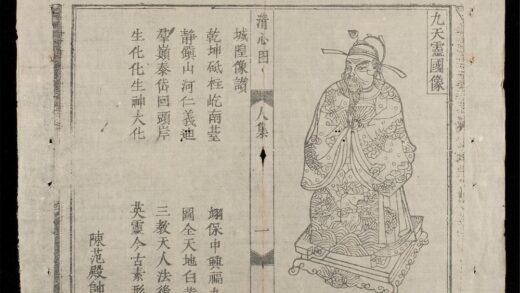 九天靈國像
清心图
人集
一
城隍像讃
乾坤砥柱屹南 翊保中興福
靜鎮山河仁義迪 國全天地白
嶺泰岱回頭岸 三教天人法後
生化化生神大化 英靈今古素形
陳范殿帥